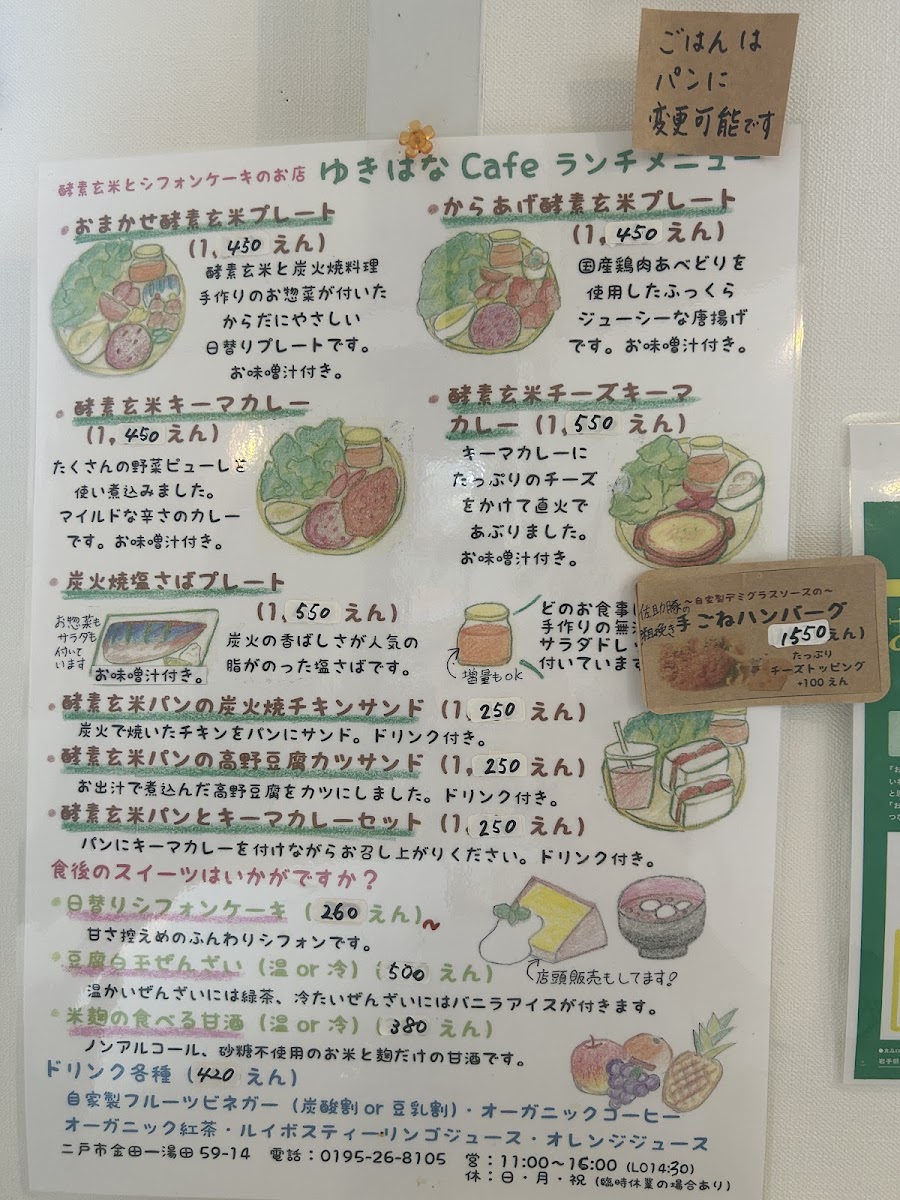 ごはんは
パンに
変更可能です
酵素玄米とシフォンケーキのお店 ゆきはな Cafe ランチメニュー
・おまかせ酵素玄米プレート
(1,450えん)
酵素玄米と炭火焼料理
手作りのお惣菜が付いた
からだにやさしい
日替りプレートです。
お味噌汁付き。
・からあげ酵素玄米プレート
(1,450えん)
国産鶏肉あべどりを
使用したふっくら
ジューシーな唐揚げ
です。お味噌汁付き。
・酵素玄米キーマカレー
(1,450えん)
たくさんの野菜ピューレを
使い煮込みました。
マイルドな辛さのカレー
です。お味噌汁付き。
・酵素玄米チーズキーマ
カレー (1,550えん)
キーマカレーに
たっぷりのチーズ
をかけて直火で
あぶりました。
お味噌汁付き。
・炭火焼塩さばプレート
(1,550えん)
お惣菜も
サラダも
付いて
います
炭火の香ばしさが人気の
脂がのった塩さばです。
お味噌汁付き。
どのお食事
手作りの無
サラダドレ
付いています
増量もok
〜自家製デミグラスソースの〜
佐助豚の
粗挽き
手ごねハンバーグ
1550えん)
たっぷり
チーズトッピング
+100えん
・酵素玄米パンの炭火焼チキンサンド (1,250えん)
炭火で焼いたチキンをパンにサンド。ドリンク付き。
・酵素玄米パンの高野豆腐カツサンド (1,250えん)
お出汁で煮込んだ高野豆腐をカツにしました。ドリンク付き。
・酵素玄米パンとキーマカレーセット (1,250えん)
パンにキーマカレーを付けながらお召し上がりください。ドリンク付き。
食後のスイーツはいかがですか？
・日替りシフォンケーキ (260えん)〜
甘さ控えめのふんわりシフォンです。
店頭販売もしてます！
・豆腐白玉ぜんざい (温 or 冷) (500えん)
温かいぜんざいには緑茶、冷たいぜんざいにはバニラアイスが付きます。
・米麹の食べる甘酒 (温 or 冷) (380えん)
ノンアルコール、砂糖不使用のお米と麹だけの甘酒です。
ドリンク各種 (420えん)
自家製フルーツビネガー (炭酸割 or 豆乳割)・オーガニックコーヒー
オーガニック紅茶・ルイボスティー・リンゴジュース・オレンジジュース
二戸市金田一湯田59-14 電話：0195-26-8105 営：11:00〜16:00 (LO14:30)
休：日・月・祝 (臨時休業の場合あり)